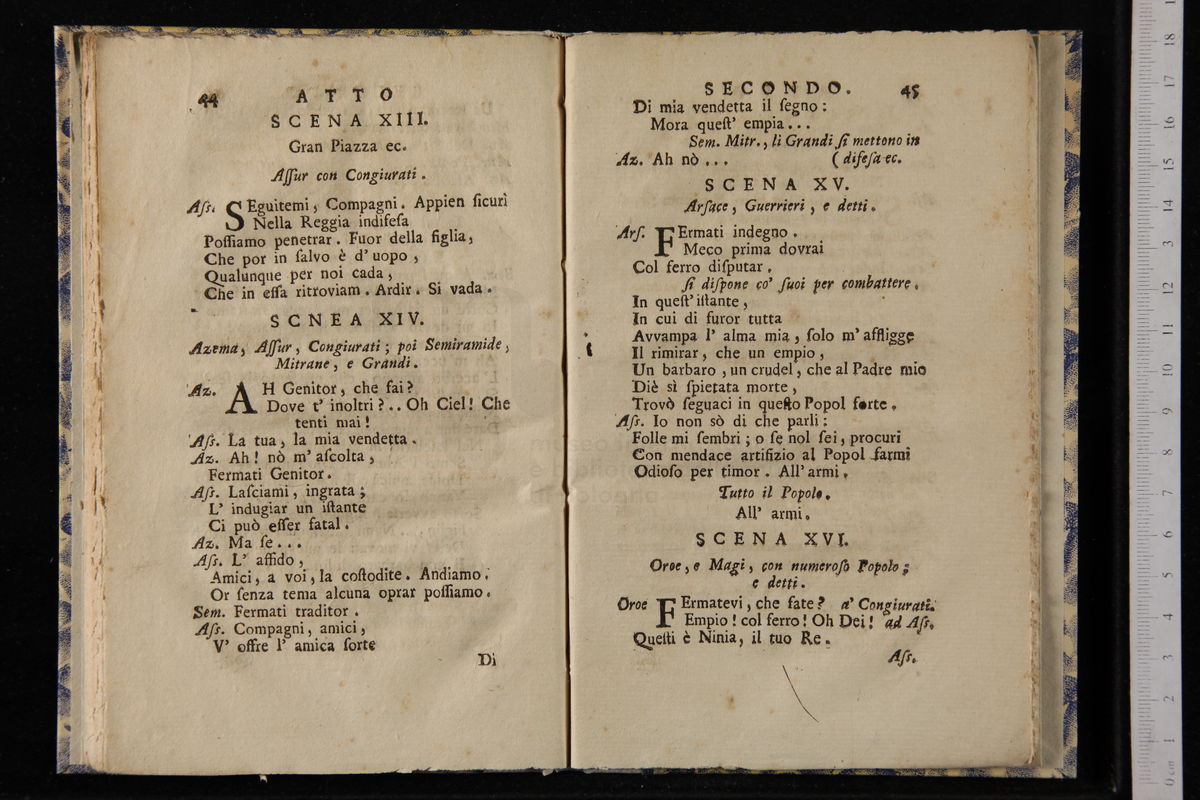 44 ATTO
SCENA XIII.
Gran Piazza ec.
Aſſur con Congiurati.
Aſs. SEguitemi, Compagni. Appien ſicuri
Nella Reggia indifeſa
Poſſiamo penetrar. Fuor della figlia,
Che por in ſalvo è d' uopo,
Qualunque per noi cada,
Che in eſſa ritroviam. Ardir. Si vada.
SCNEA XIV.
Azema, Aſſur, Congiurati; poi Semiramide,
Mitrane, e Grandi.
Az. AH Genitor, che fai?
Dove t' inoltri?.. Oh Ciel! Che
tenti mai!
Aſs. La tua, la mia vendetta.
Az. Ah! nò m' aſcolta,
Fermati Genitor.
Aſs. Laſciami, ingrata;
L' indugiar un iſtante
Ci può eſſer fatal.
Az. Ma ſe...
Aſs. L' affido,
Amici, a voi, la coſtodite. Andiamo.
Or ſenza tema alcuna oprar poſſiamo.
Sem. Fermati traditor.
Aſs. Compagni, amici,
V' offre l' amica ſorte
Di
SECONDO. 45
Di mia vendetta il ſegno:
Mora queſt' empia...
Sem. Mitr., li Grandi ſi mettono in
Az. Ah nò... (difeſa ec.
SCENA XV.
Arſace, Guerrieri, e detti.
Arſ. FErmati indegno.
Meco prima dovrai
Col ferro diſputar.
ſi diſpone co' ſuoi per combattere.
In queſt' iſtante,
In cui di furor tutta
Avvampa l' alma mia, ſolo m' affligge
Il rimirar, che un empio,
Un barbaro, un crudel, che al Padre mio
Diè sì ſpietata morte,
Trovò ſeguaci in queſto Popol forte.
Aſs. Io non sò di che parli:
Folle mi ſembri; o ſe nol ſei, procuri
Con mendace artifizio al Popol farmi
Odioſo per timor. All' armi.
Tutto il Popolo.
All' armi.
SCENA XVI.
Oroe, e Magi, con numeroſo Popolo;
e detti.
Oroe FErmatevi, che fate? a' Congiurati.
Empio! col ferro! Oh Dei! ad Aſs.
Queſti è Ninia, il tuo Re.
Aſs.